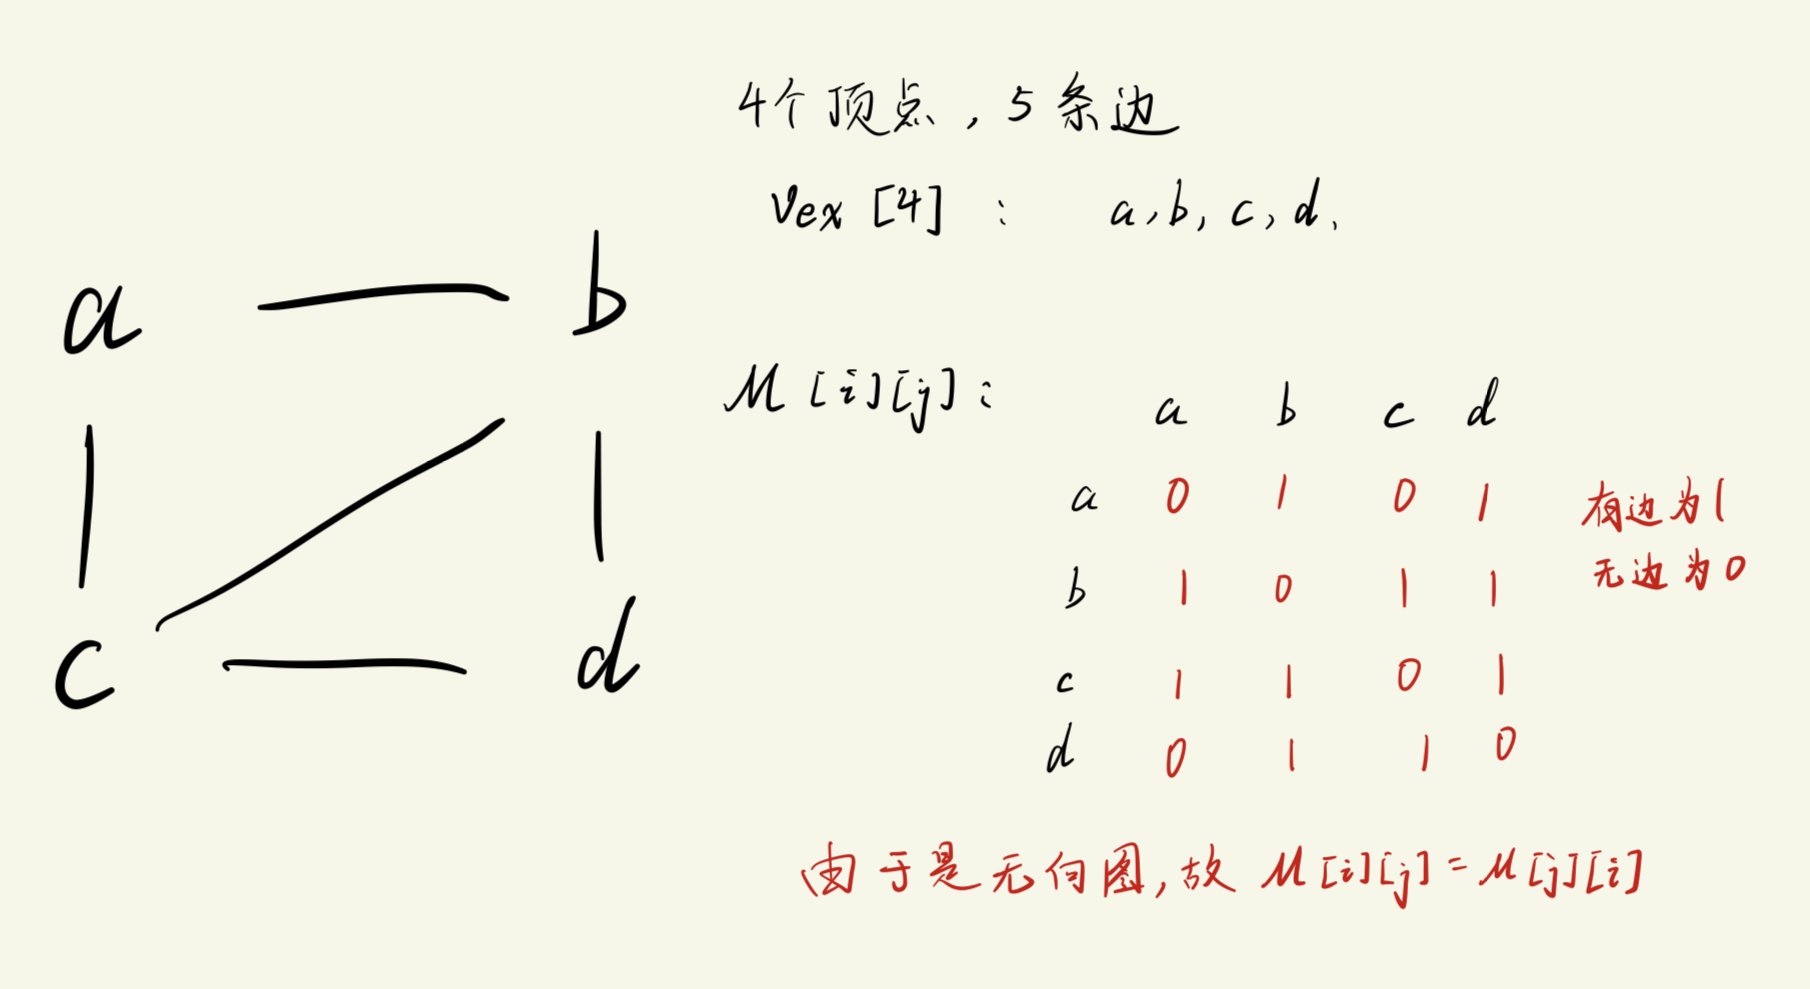 4个顶点，5条边
Vex [4] : a, b, c, d、
a b
c d
M [i][j] :
a b c d
a 0 1 0 1
b 1 0 1 1
c 1 1 0 1
d 0 1 1 0
有边为1
无边为0
由于是无向图,故 M[i][j] = M[j][i]